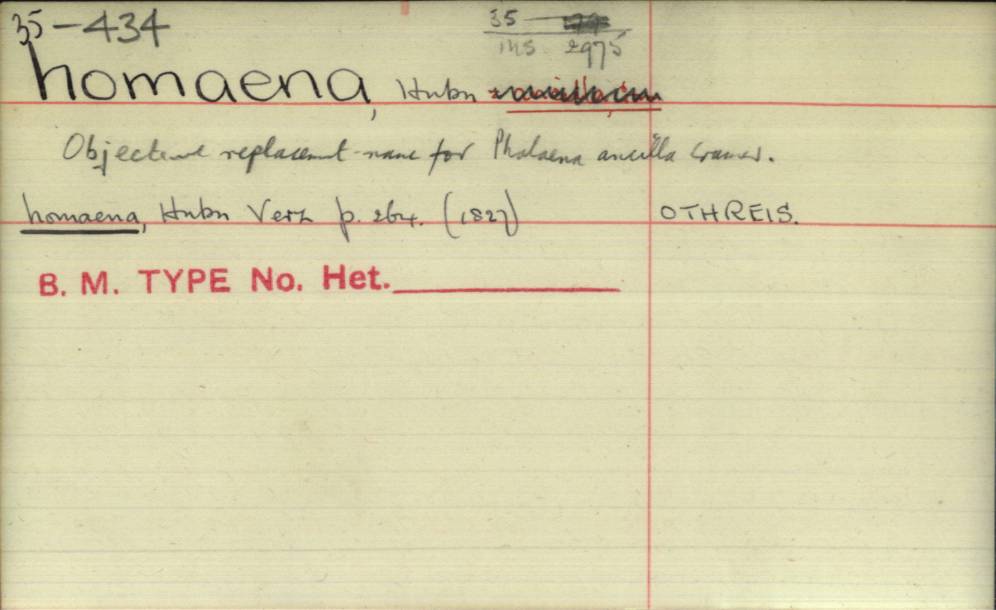 35-434
35
ms 2975
homaena, Hubn
Objective replacement name for Phalaena ancilla Cramer.
homaena, Hubn Verz p. 264. (1827) OTHREIS.
B. M. TYPE No. Het.